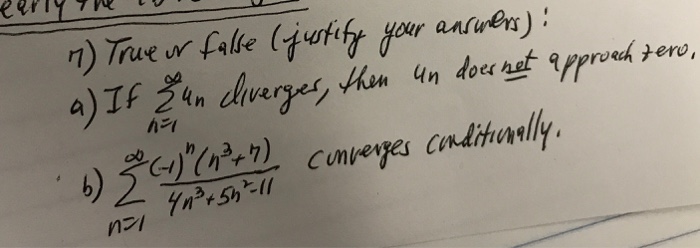 7) True or false (justify your answers):
a) If ∞Σn=1 un diverges, then un does not approach zero.
b) ∞Σn=1 (-1)^n (n^3+7) / 4n^3+5n^2-11 converges conditionally.